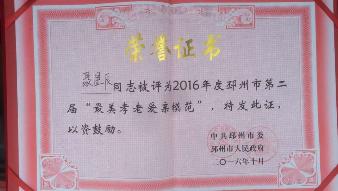 荣誉证书
聂显辰同志被评为2016年度邳州市第二
届“最美孝老爱亲模范”，特发此证，
以资鼓励。
中共邳州市委
邳州市人民政府
二〇一六年十月